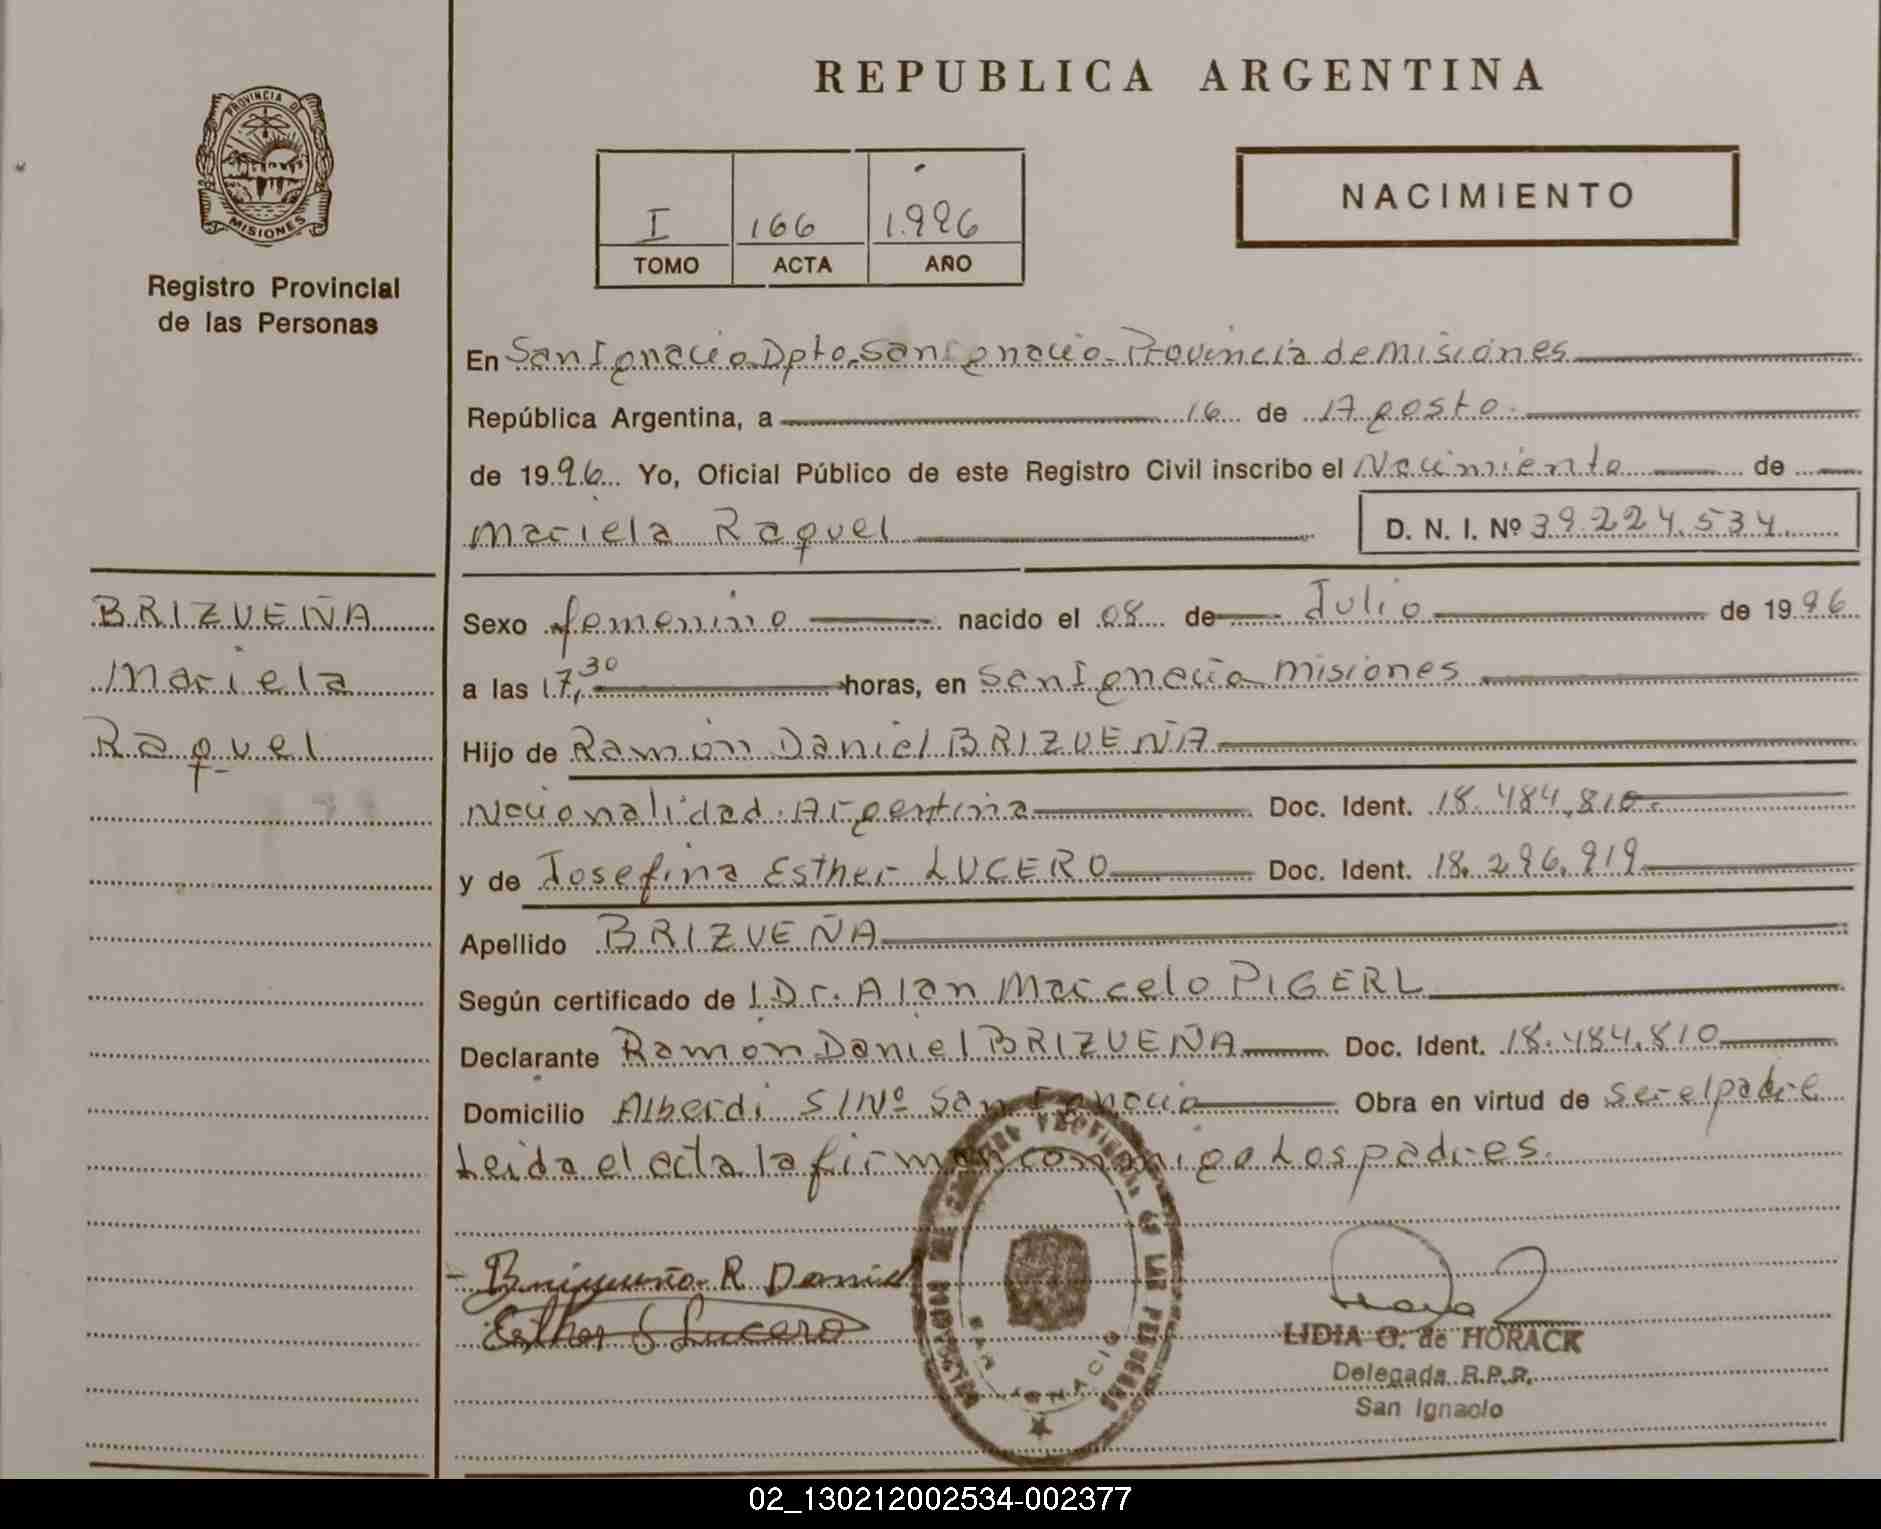 REPUBLICA ARGENTINA
PROVINCIA DE
MISIONES
Registro Provincial
de las Personas
I 166 1.996
TOMO ACTA AÑO
NACIMIENTO
En San Ignacio Dpto. San Ignacio. Provincia de Misiones
República Argentina, a 16 de Agosto.
de 1996 Yo, Oficial Público de este Registro Civil inscribo el Nacimiento de
Mariela Raquel D. N. I. Nº 39.224.534
BRIZUEÑA
Mariela
Raquel
Sexo femenino nacido el 08 de Julio de 1996
a las 17,30 horas, en San Ignacio Misiones
Hijo de Ramón Daniel BRIZUEÑA
Nacionalidad Argentina Doc. Ident. 18.484.810.
y de Josefina Esther LUCERO Doc. Ident. 18.296.919
Apellido BRIZUEÑA
Según certificado de l Dr. Alan Marcelo PIGERL
Declarante Ramón Daniel BRIZUEÑA Doc. Ident. 18.484.810
Domicilio Alberdi S/Nº San Ignacio Obra en virtud de ser el padre
Leida el acta la firman conmigo Los padres.
Brizueña R Daniel
Esther Lucero
SAN IGNACIO
LIDIA O. de HORACK
Delegada R.P.P.
San Ignacio
02_130212002534-002377